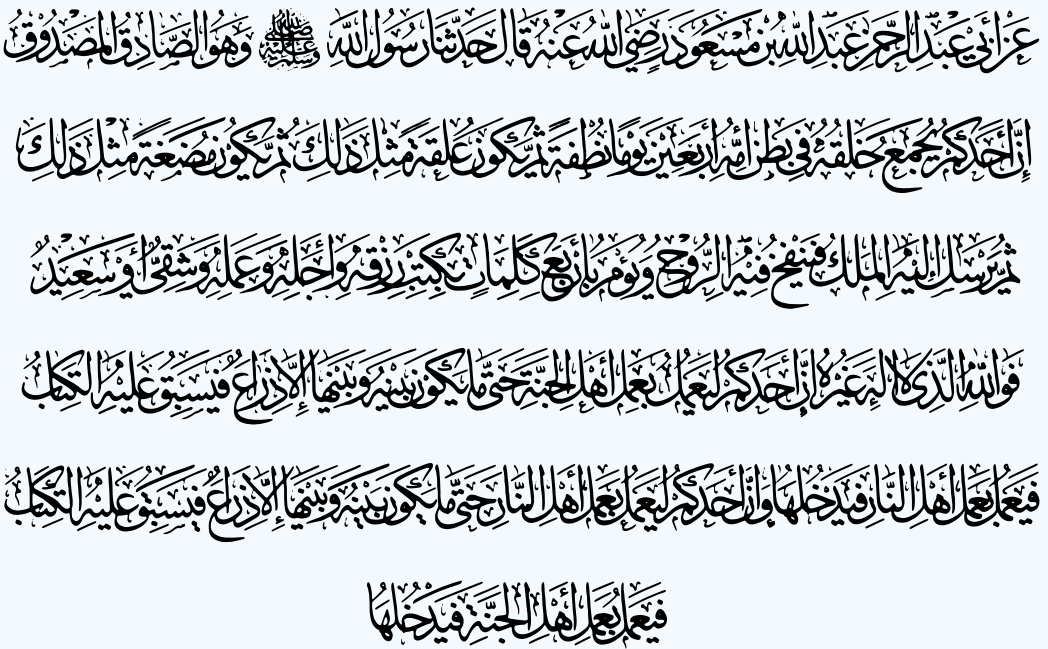 عَنْ أَبِي عَبْدِ الرَّحْمَنِ عَبْدِ اللَّهِ بْنِ مَسْعُودٍ رَضِيَ اللَّهُ عَنْهُ قَالَ حَدَّثَنَا رَسُولُ اللَّهِ ﷺ وَهُوَ الصَّادِقُ الْمَصْدُوقُ
إِنَّ أَحَدَكُمْ يُجْمَعُ خَلْقُهُ فِي بَطْنِ أُمِّهِ أَرْبَعِينَ يَوْمًا نُطْفَةً ثُمَّ يَكُونُ عَلَقَةً مِثْلَ ذَلِكَ ثُمَّ يَكُونُ مُضْغَةً مِثْلَ ذَلِكَ
ثُمَّ يُرْسَلُ إِلَيْهِ الْمَلَكُ فَيَنْفُخُ فِيْهِ الرُّوحَ وَيُؤْمَرُ بِأَرْبَعِ كَلِمَاتٍ بِكَتْبِ رِزْقِهِ وَأَجَلِهِ وَعَمَلِهِ وَشَقِيٌّ أَوْ سَعِيدٌ
فَوَاللَّهِ الَّذِي لَا إِلَهَ غَيْرُهُ إِنَّ أَحَدَكُمْ لَيَعْمَلُ بِعَمَلِ أَهْلِ الْجَنَّةِ حَتَّى مَا يَكُونَ بَيْنَهُ وَبَيْنَهَا إِلَّا ذِرَاعٌ فَيَسْبِقُ عَلَيْهِ الْكِتَابُ
فَيَعْمَلُ بِعَمَلِ أَهْلِ النَّارِ فَيَدْخُلُهَا وَإِنَّ أَحَدَكُمْ لَيَعْمَلُ بِعَمَلِ أَهْلِ النَّارِ حَتَّى مَا يَكُونَ بَيْنَهُ وَبَيْنَهَا إِلَّا ذِرَاعٌ فَيَسْبِقُ عَلَيْهِ الْكِتَابُ
فَيَعْمَلُ بِعَمَلِ أَهْلِ الْجَنَّةِ فَيَدْخُلُهَا